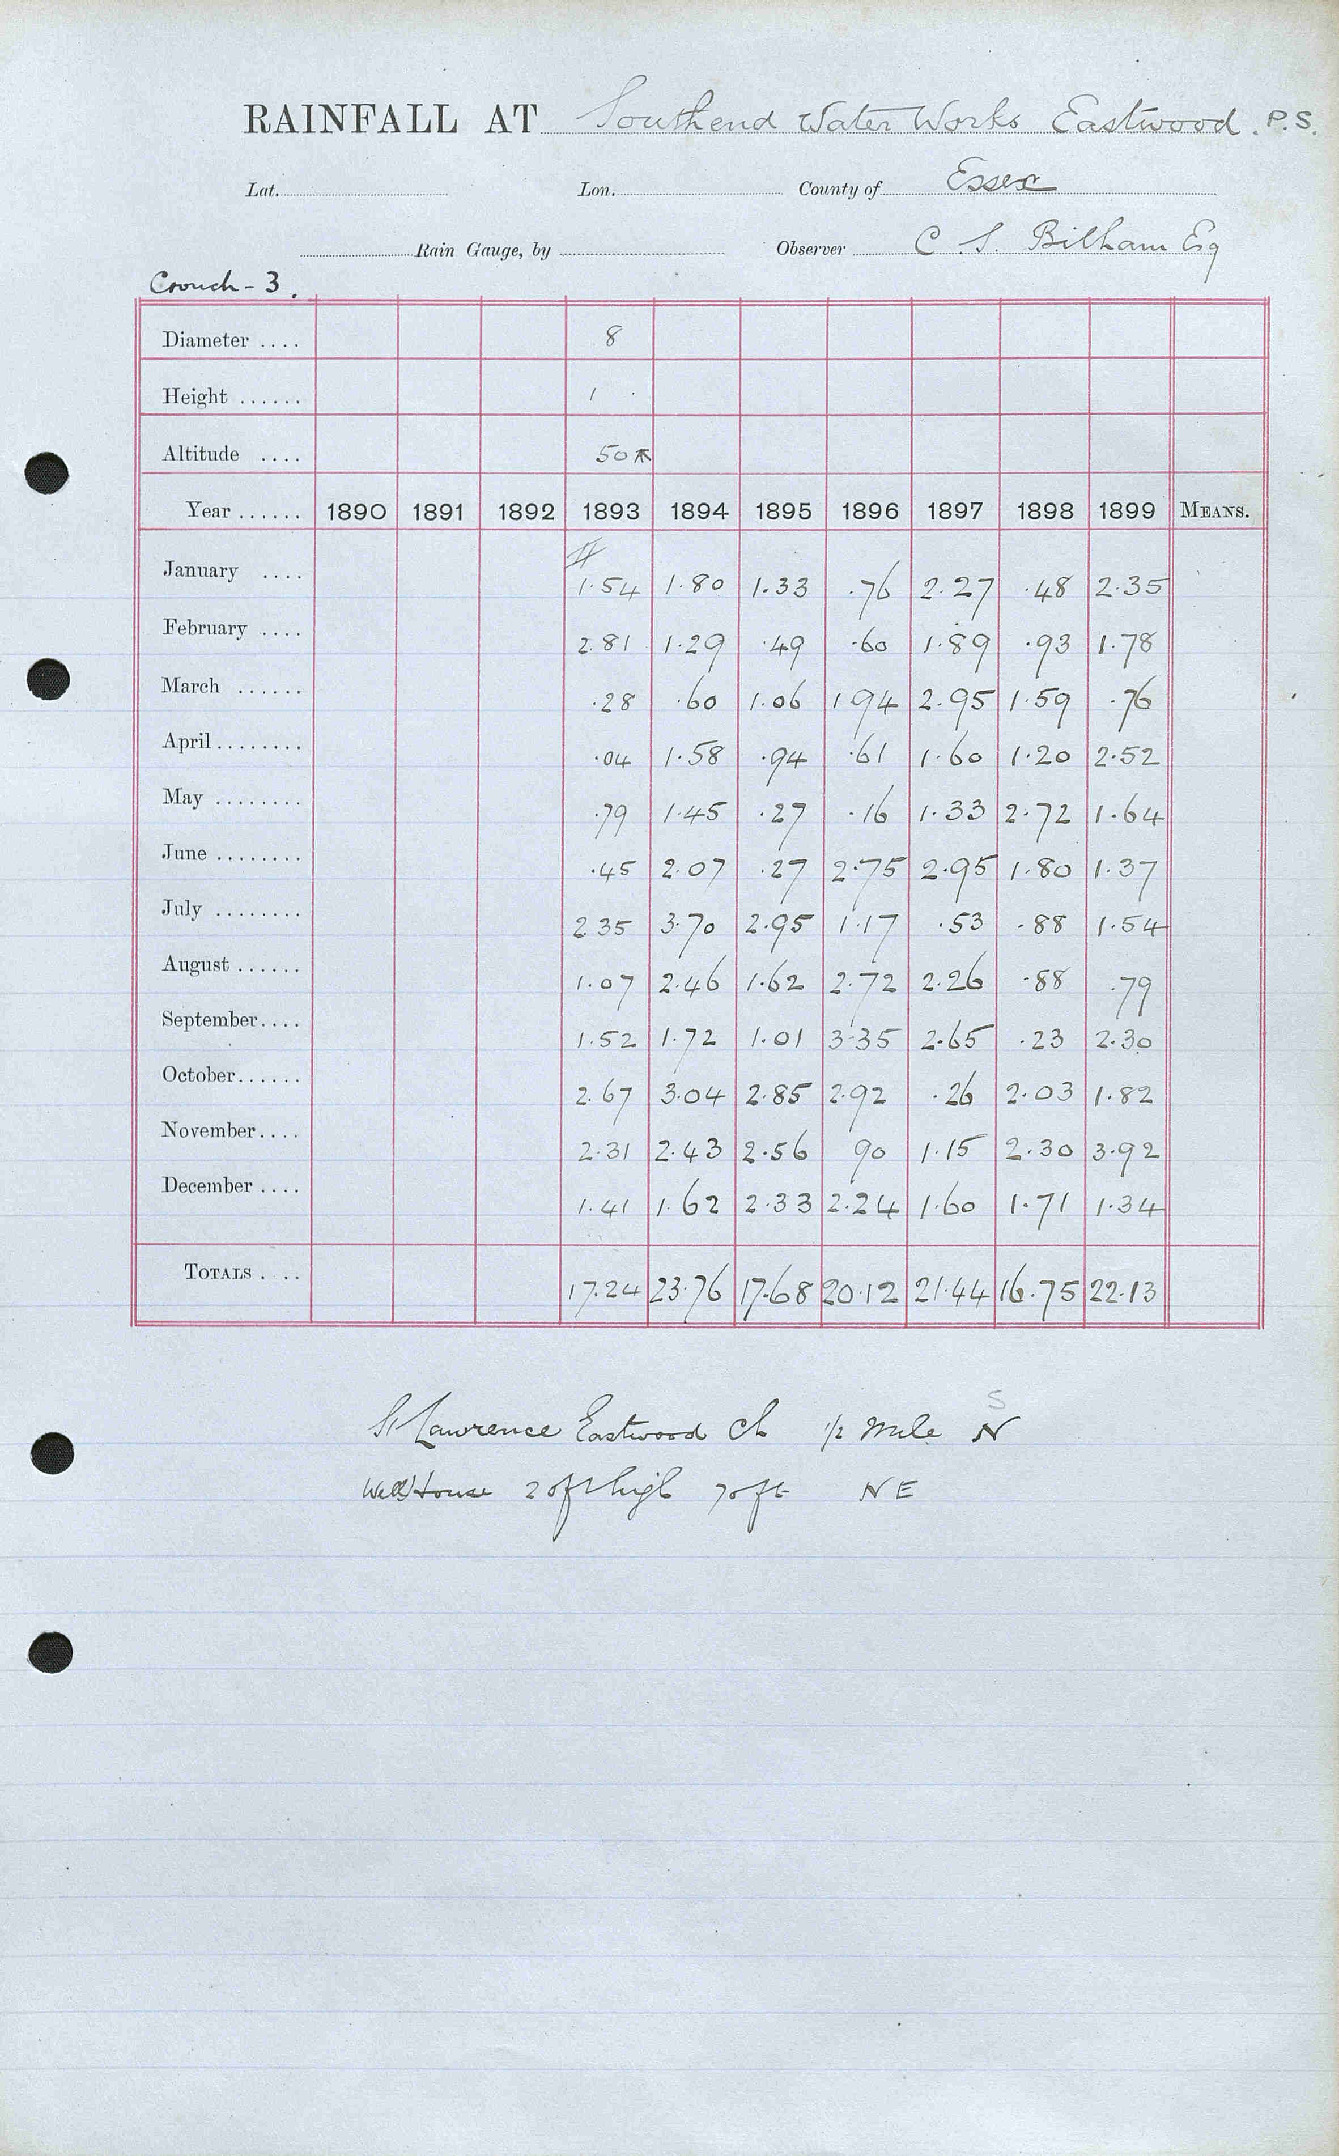 RAINFALL AT Southend Water Works Eastwood. P.S.
Lat. Lon. County of Essex
Rain Gauge, by Observer C S. Bilham Esq
Crouch - 3.
Diameter .... 8
Height ...... 1
Altitude .... 50
Year ...... 1890 1891 1892 1893 1894 1895 1896 1897 1898 1899 MEANS.
January .... 1.54 1.80 1.33 .76 2.27 .48 2.35
February .... 2.81 1.29 .49 .60 1.89 .93 1.78
March ...... .28 .60 1.06 1 94 2.95 1.59 .76
April ........ .04 1.58 .94 .61 1.60 1.20 2.52
May ........ .79 1.45 .27 .16 1.33 2.72 1.64
June ........ .45 2.07 .27 2.75 2.95 1.80 1.37
July ........ 2 35 3.70 2.95 1.17 .53 .88 1.54
August ...... 1.07 2.46 1.62 2.72 2.26 .88 .79
September.... 1.52 1.72 1.01 3.35 2.65 .23 2.30
October...... 2.67 3.04 2.85 2.92 .26 2.03 1.82
November.... 2.31 2.43 2.56 90 1.15 2.30 3.92
December .... 1.41 1.62 2.33 2.24 1.60 1.71 1.34
TOTALS .... 17.24 23.76 17.68 20.12 21.44 16.75 22.13
S
St Lawrence Eastwood Ch 1/2 mile N
Well House 20ft high 70ft NE